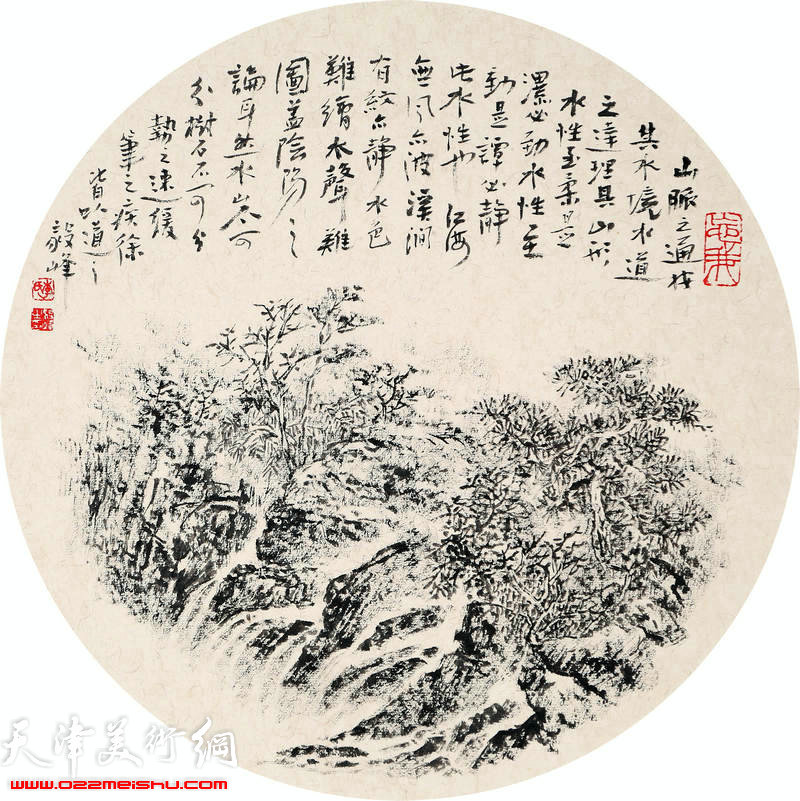 山脈之通按
其水境水道
之達理其山形
水性至柔是
瀑必動水性至
動是譚必静
此水性也 江海
無風亦波溪澗
有紋亦静水色
難繪水聲難
圖蓋陰陽之
論耳然水可
分樹石不可分
勢之速緩
筆之疾徐
皆以道之
毅峰
天津美術網
www.022meishu.com